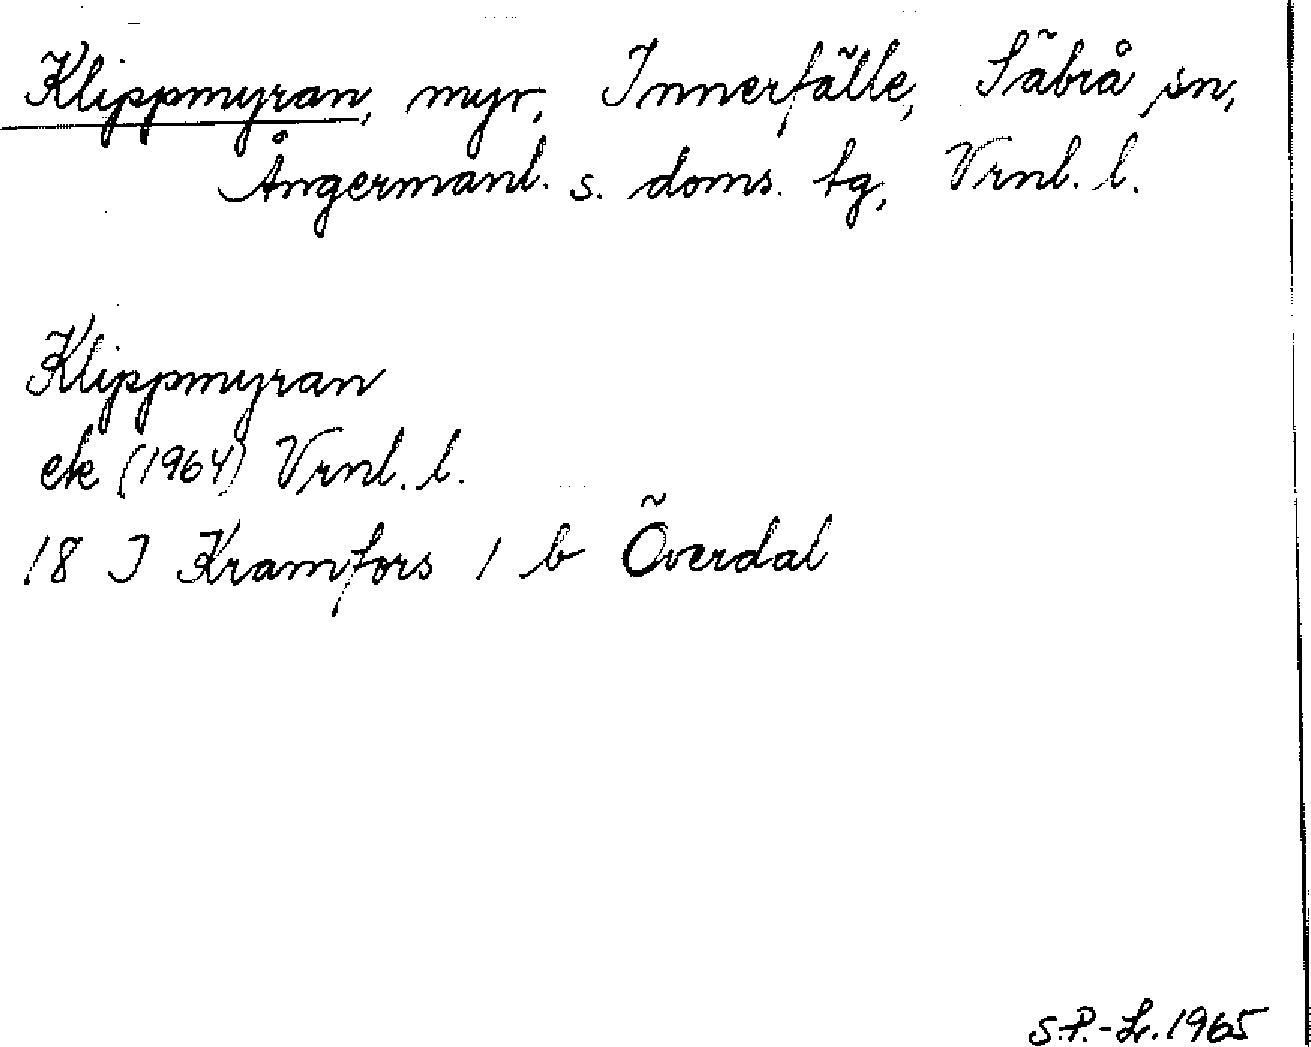 Klippmyran, myr, Innerfälle, Säbrå sn,
Ångermanl. s. doms. tg, Vrnl. l.
Klippmyran
ek (1964) Vrnl. l.
18 I Kramfors 1 b Överdal
S.P.-L. 1965